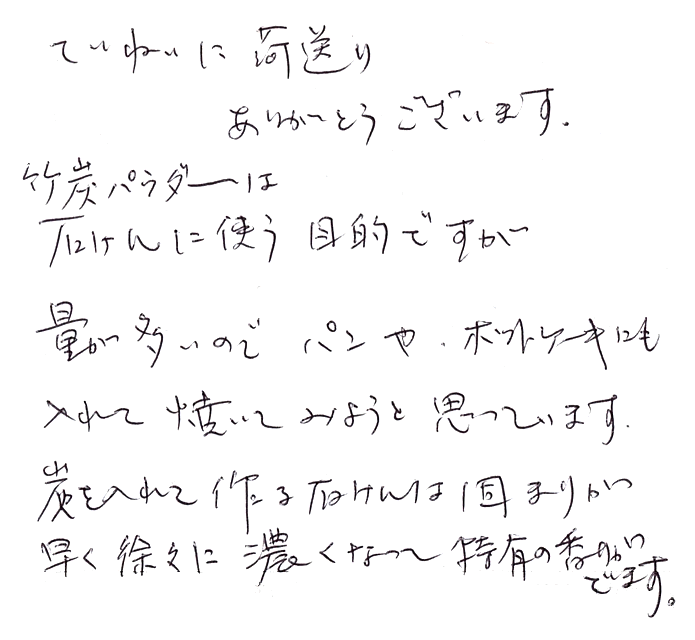 ていねいに荷送り
ありがとうございます.
竹炭パウダーは
石けんに使う目的ですが
量が多いので パンや.ホットケーキにも
入れて 焼いてみようと思っています.
炭を入れて作る石けんは固まりが
早く徐々に濃くなって特有の香りが
でます。